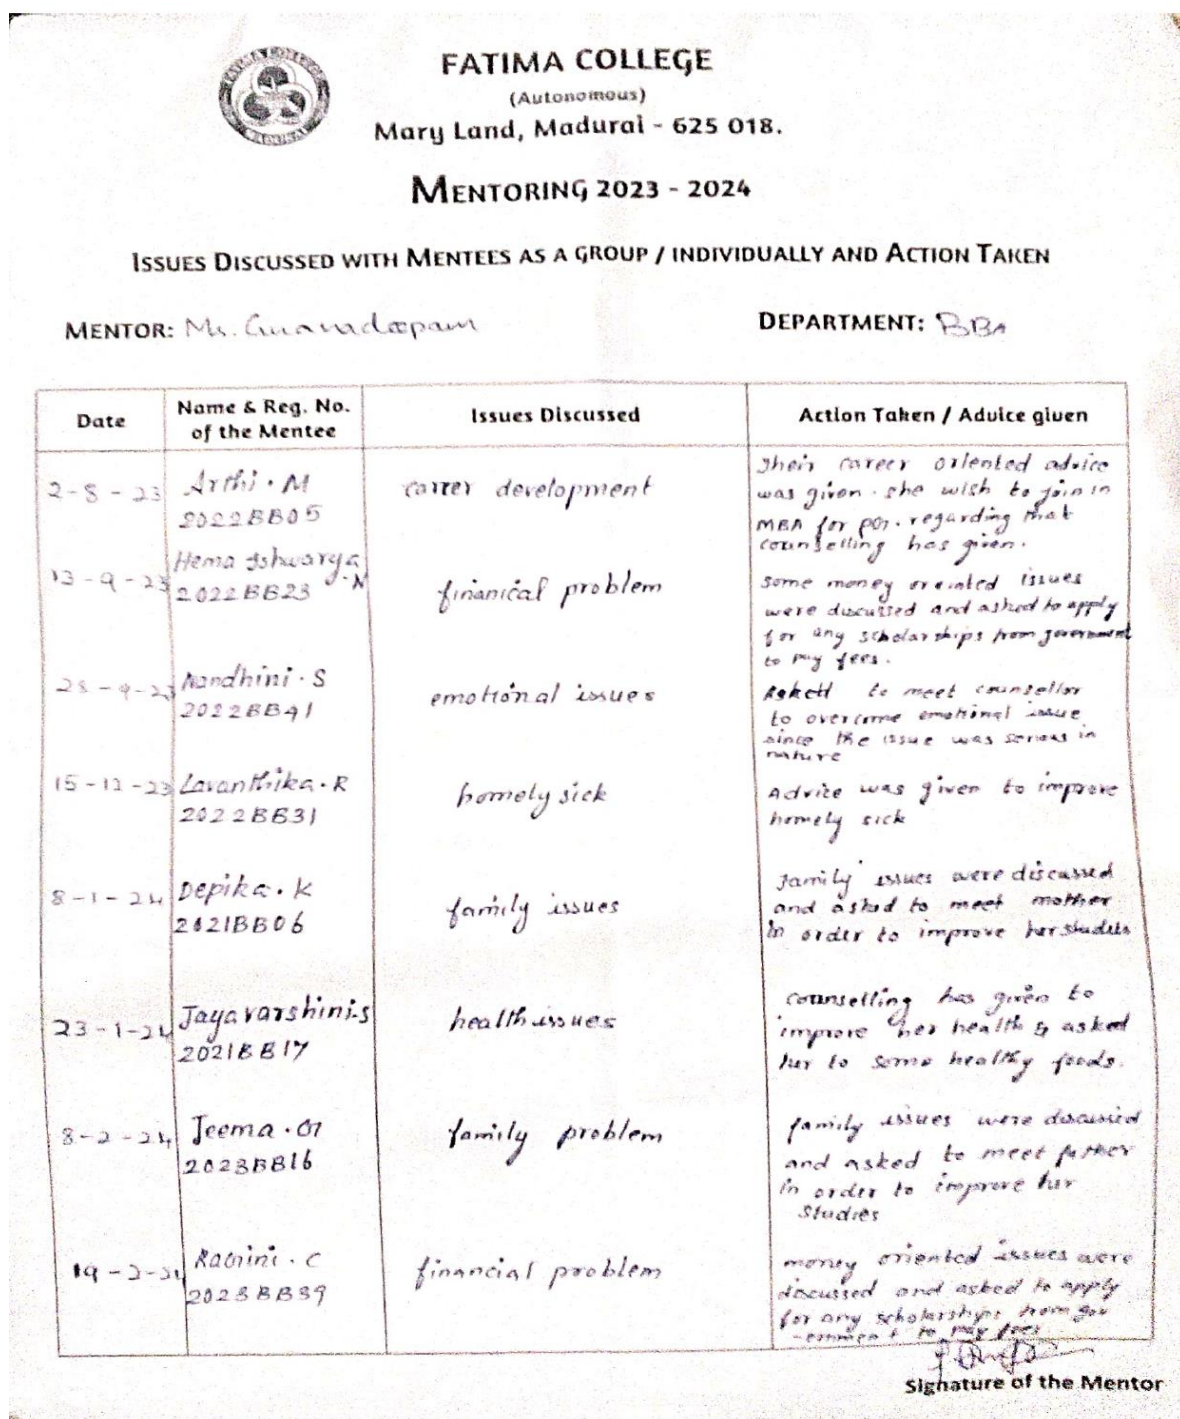 FATIMA COLLEGE
(Autonomous)
Mary Land, Madurai - 625 018.
MENTORING 2023 - 2024
ISSUES DISCUSSED WITH MENTEES AS A GROUP / INDIVIDUALLY AND ACTION TAKEN
MENTOR: Ms. Gnanadeepam
DEPARTMENT: BBA
Date
Name & Reg. No.
of the Mentee
Issues Discussed
Action Taken / Advice given
2-8-23
Arthi. M
2022BB05
career development
Their career oriented advice
was given. she wish to join in
MBA for PG. regarding that
counselling has given.
13-9-23
Hema Ishwarya
.N
2022BB23
finanical problem
some money oriented issues
were discussed and asked to apply
for any scholarships from government
to pay fees.
Nandhini. S
2022BB41
emotional issues
Asked to meet counsellor
to overcome emotional issue
since the issue was serious in
nature
Lavanthika. R
2022BB31
homely sick
Advice was given to improve
homely sick
8-1-24
Depika. K
2021BB06
family issues
Family issues were discussed
and asked to meet mother
in order to improve her studies
23-1-24
Jayavarshini.S
2021BB17
health issues
counselling has given to
improve her health & asked
her to some healthy foods.
8-2-24
Jeema. G
2023BB16
family problem
family issues were discussed
and asked to meet father
in order to improve her
studies
19-2-24
Ragini. C
2023BB39
financial problem
money oriented issues were
discussed and asked to apply
for any scholarships from gov
-ernment to pay fees
Signature of the Mentor